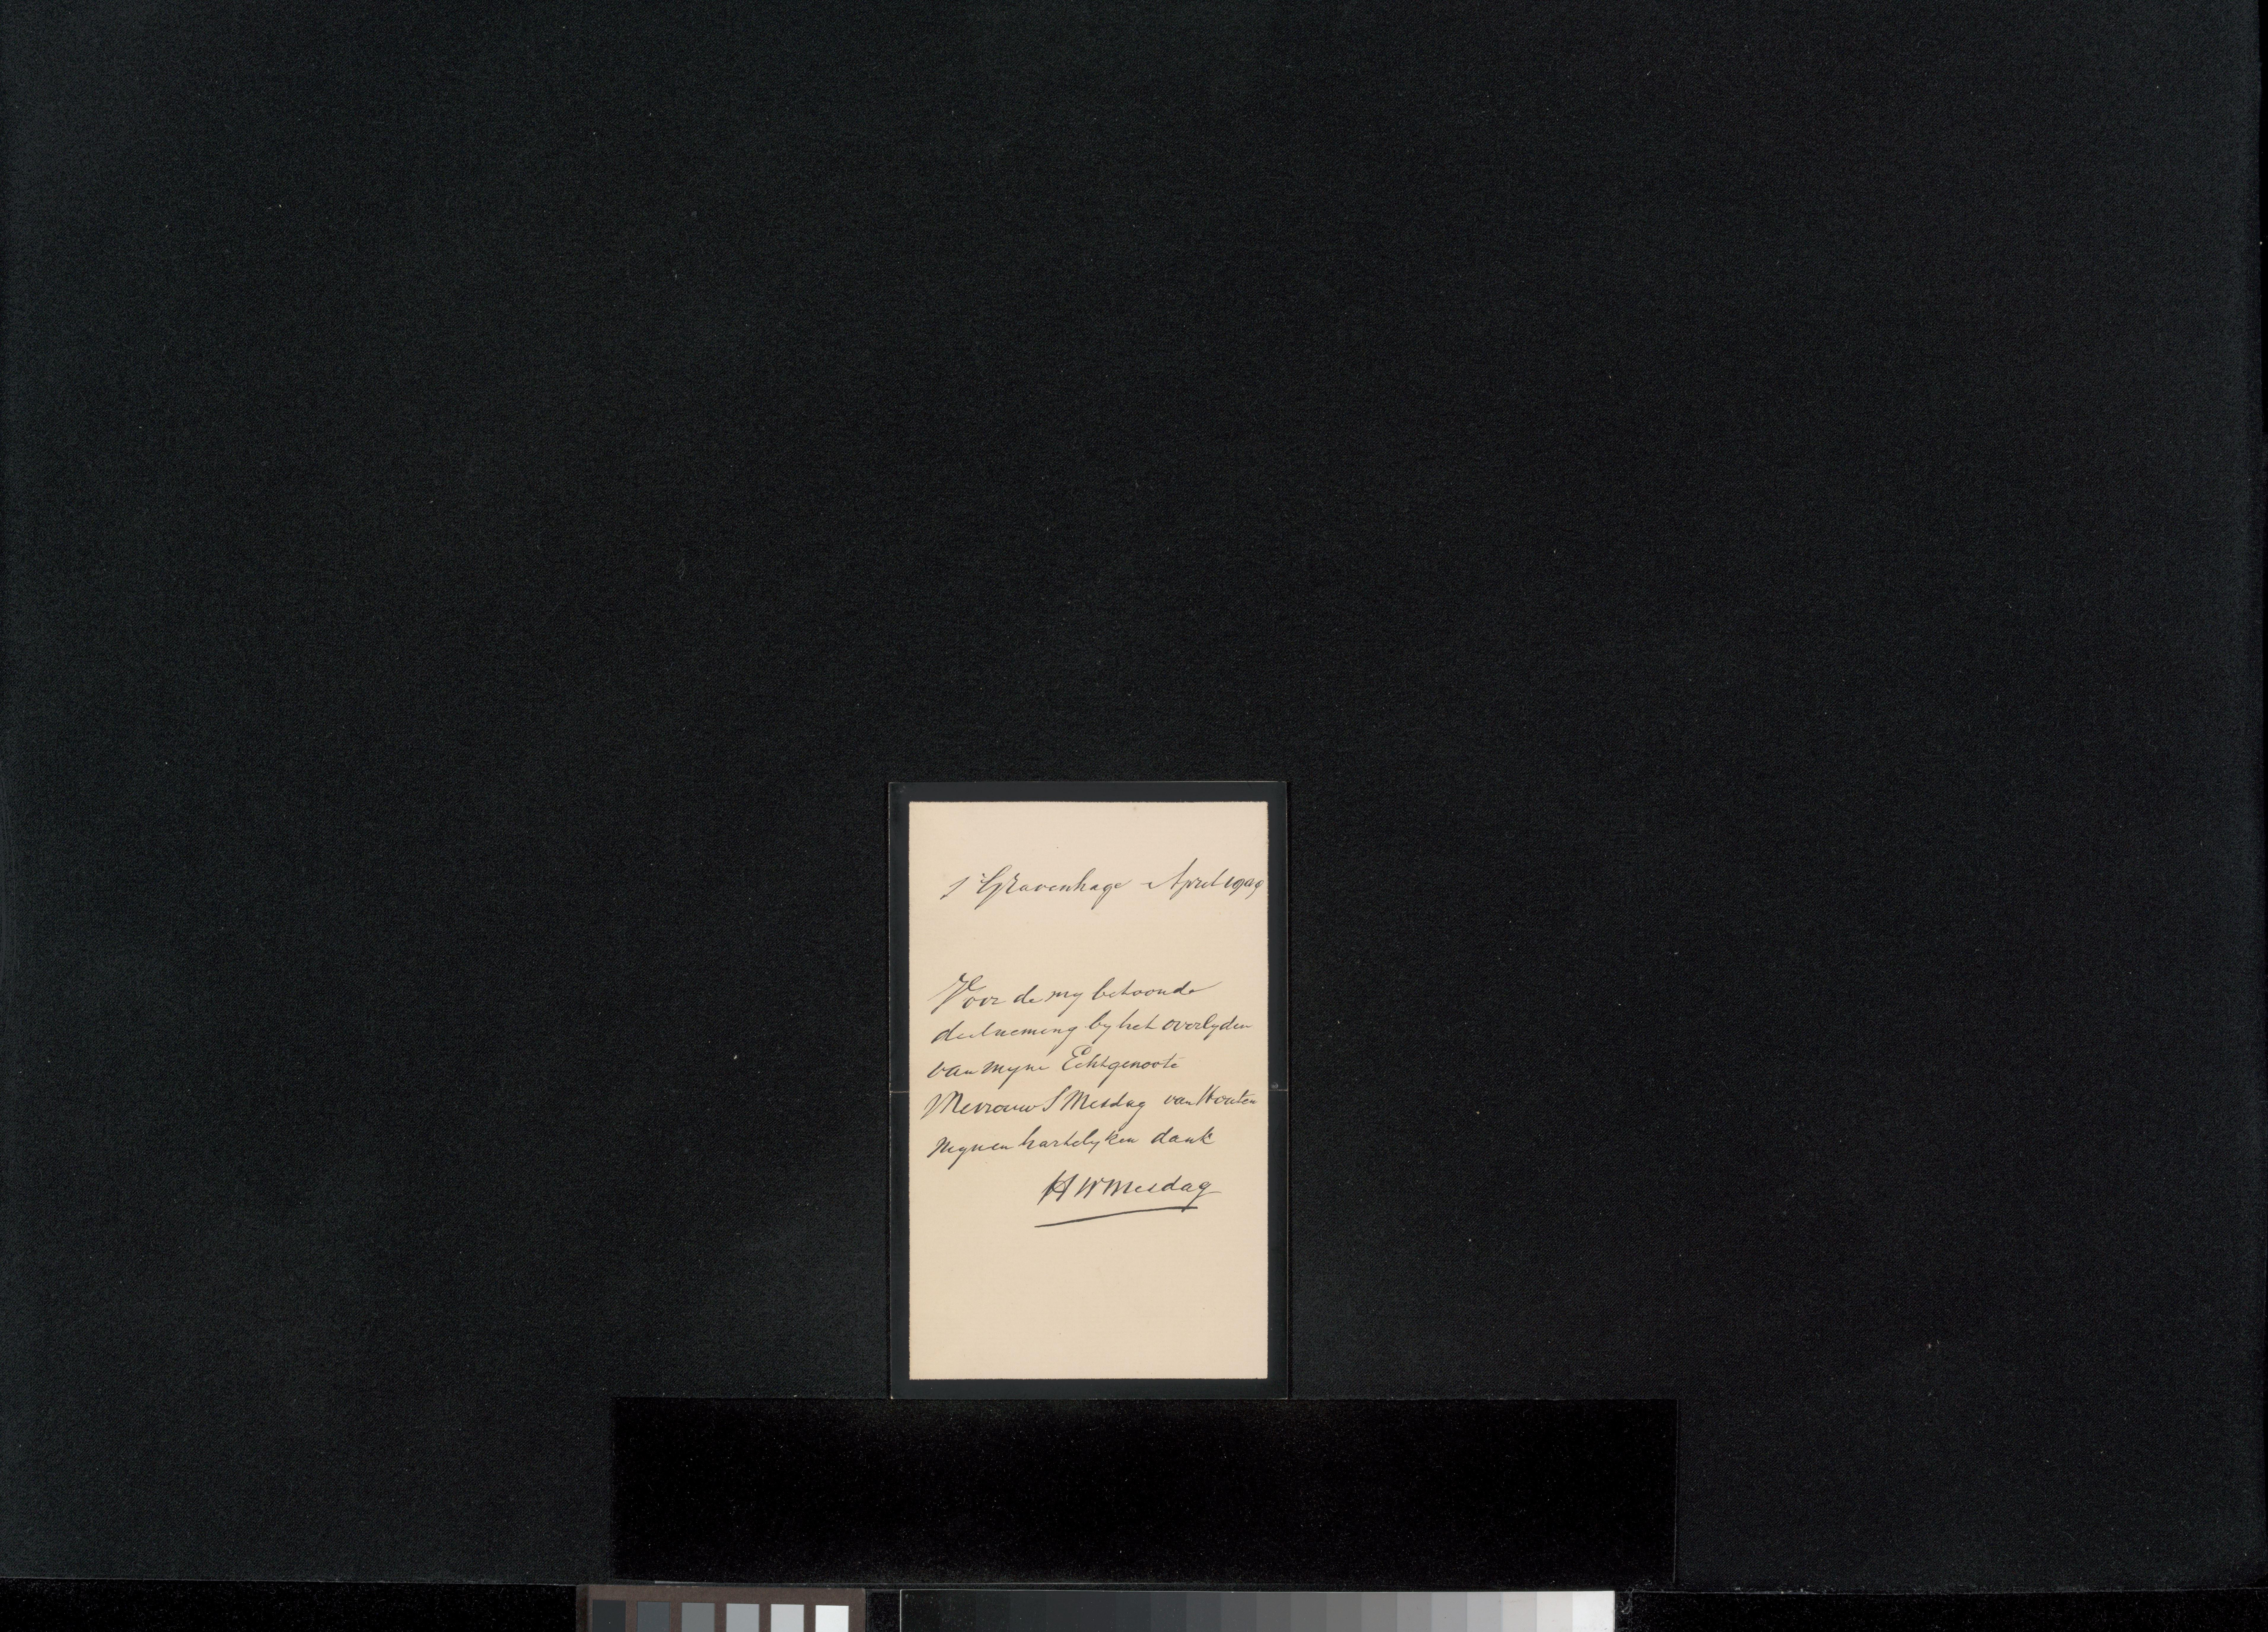 s'Gravenhage April 1909
Voor de my betoonde
deelneming by het overlyden
van myne Echtgenoote
Mevrouw S Mesdag van Houten
mynen hartelyken dank
H W Mesdag